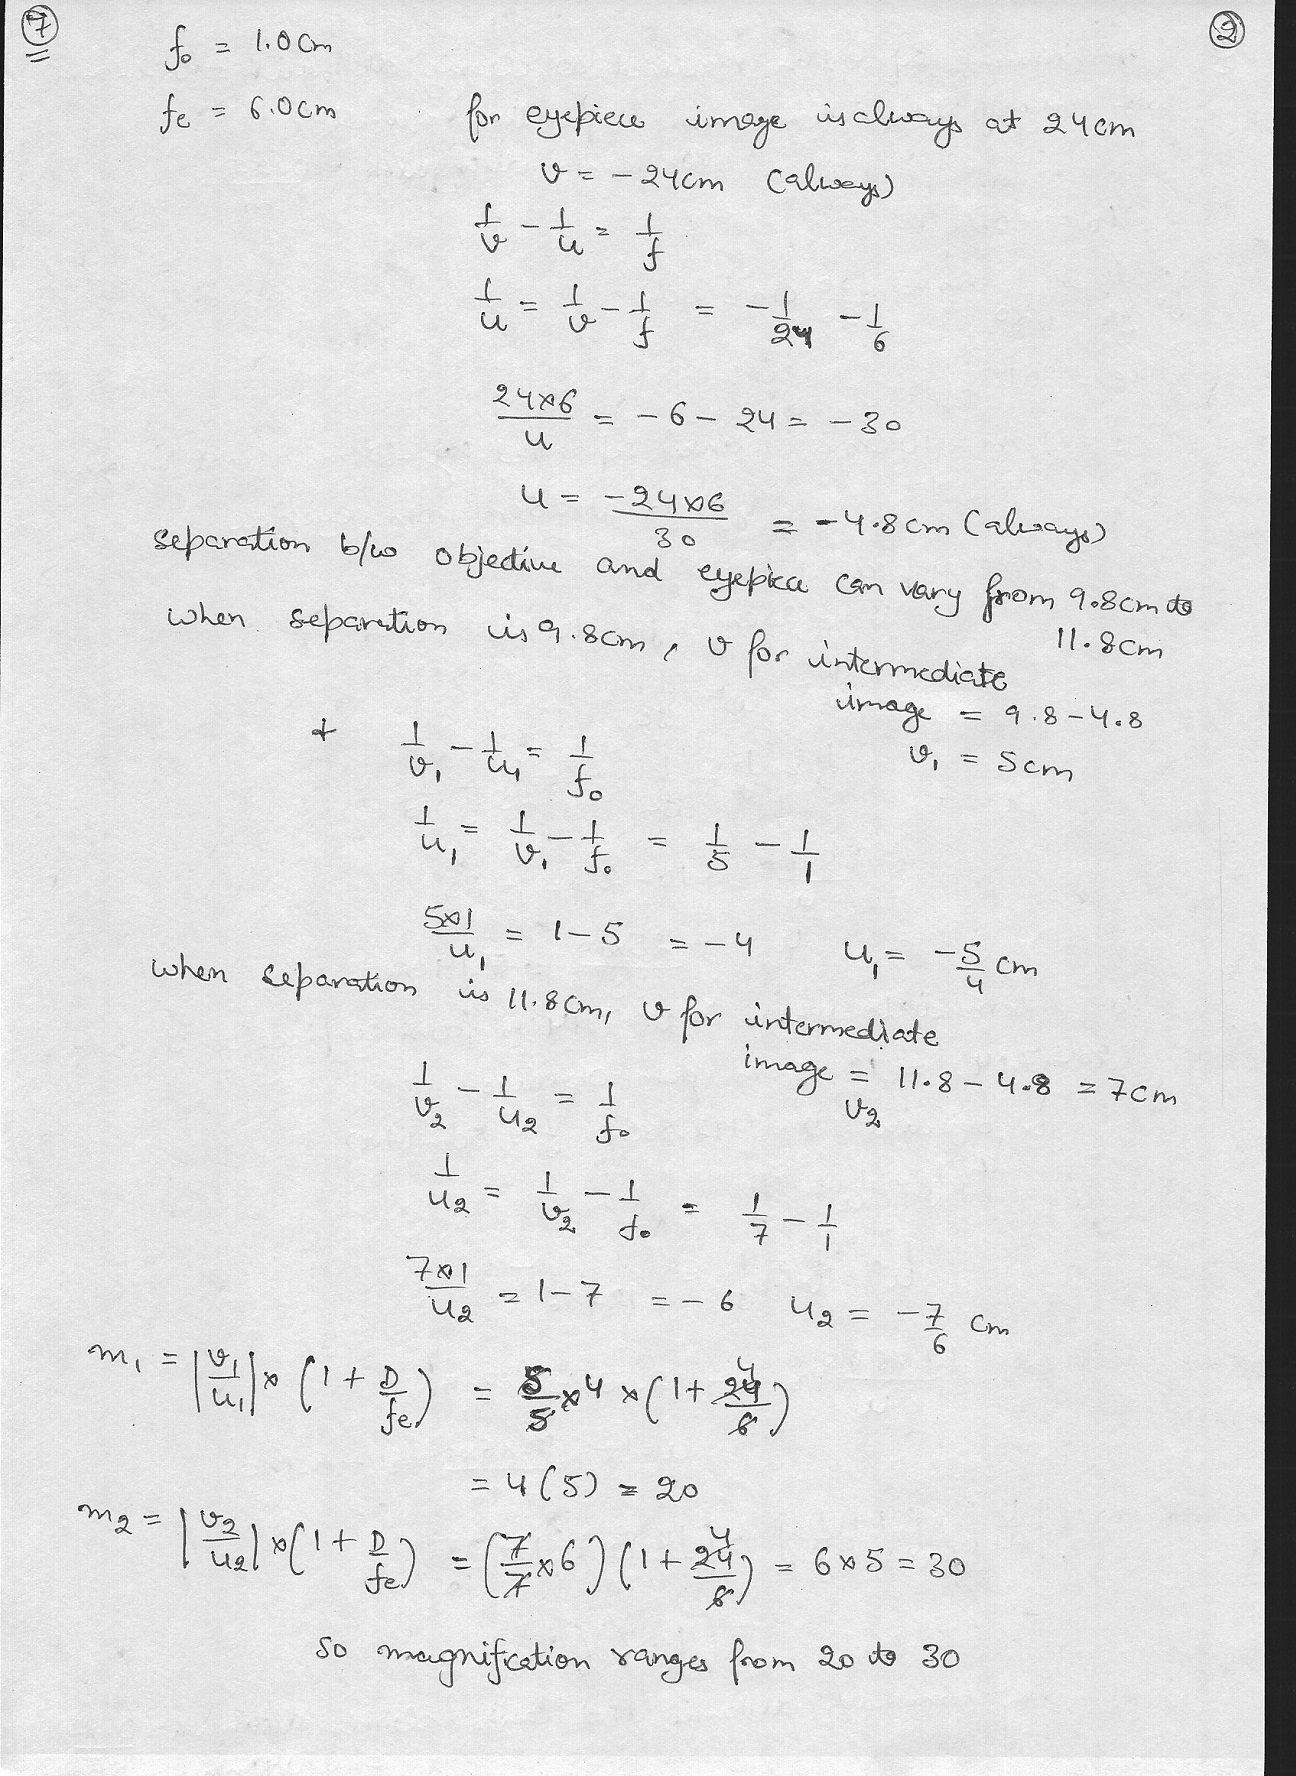 7
2
f₀ = 1.0 cm
fe = 6.0 cm    for eyepiece image is always at 24 cm
v = -24 cm (always)
1/v - 1/u = 1/f
1/u = 1/v - 1/f = -1/24 - 1/6
24×6/u = -6 - 24 = -30
u = -24×6/30 = -4.8 cm (always)
separation b/w objective and eyepiece can vary from 9.8 cm to
11.8 cm
when separation is 9.8 cm, v for intermediate
image = 9.8 - 4.8
v₁ = 5 cm
1/v₁ - 1/u₁ = 1/f₀
1/u₁ = 1/v₁ - 1/f₀ = 1/5 - 1/1
5×1/u₁ = 1-5 = -4    u₁ = -5/4 cm
when separation is 11.8 cm, v for intermediate
image = 11.8 - 4.8 = 7 cm
v₂
1/v₂ - 1/u₂ = 1/f₀
1/u₂ = 1/v₂ - 1/f₀ = 1/7 - 1/1
7×1/u₂ = 1-7 = -6    u₂ = -7/6 cm
m₁ = |v₁/u₁| × (1 + D/fe) = 5/5 × 4 × (1 + 24/6) 4
= 4(5) = 20
m₂ = |v₂/u₂| × (1 + D/fe) = (7/7 × 6) (1 + 24/6) 4 = 6×5 = 30
so magnification ranges from 20 to 30